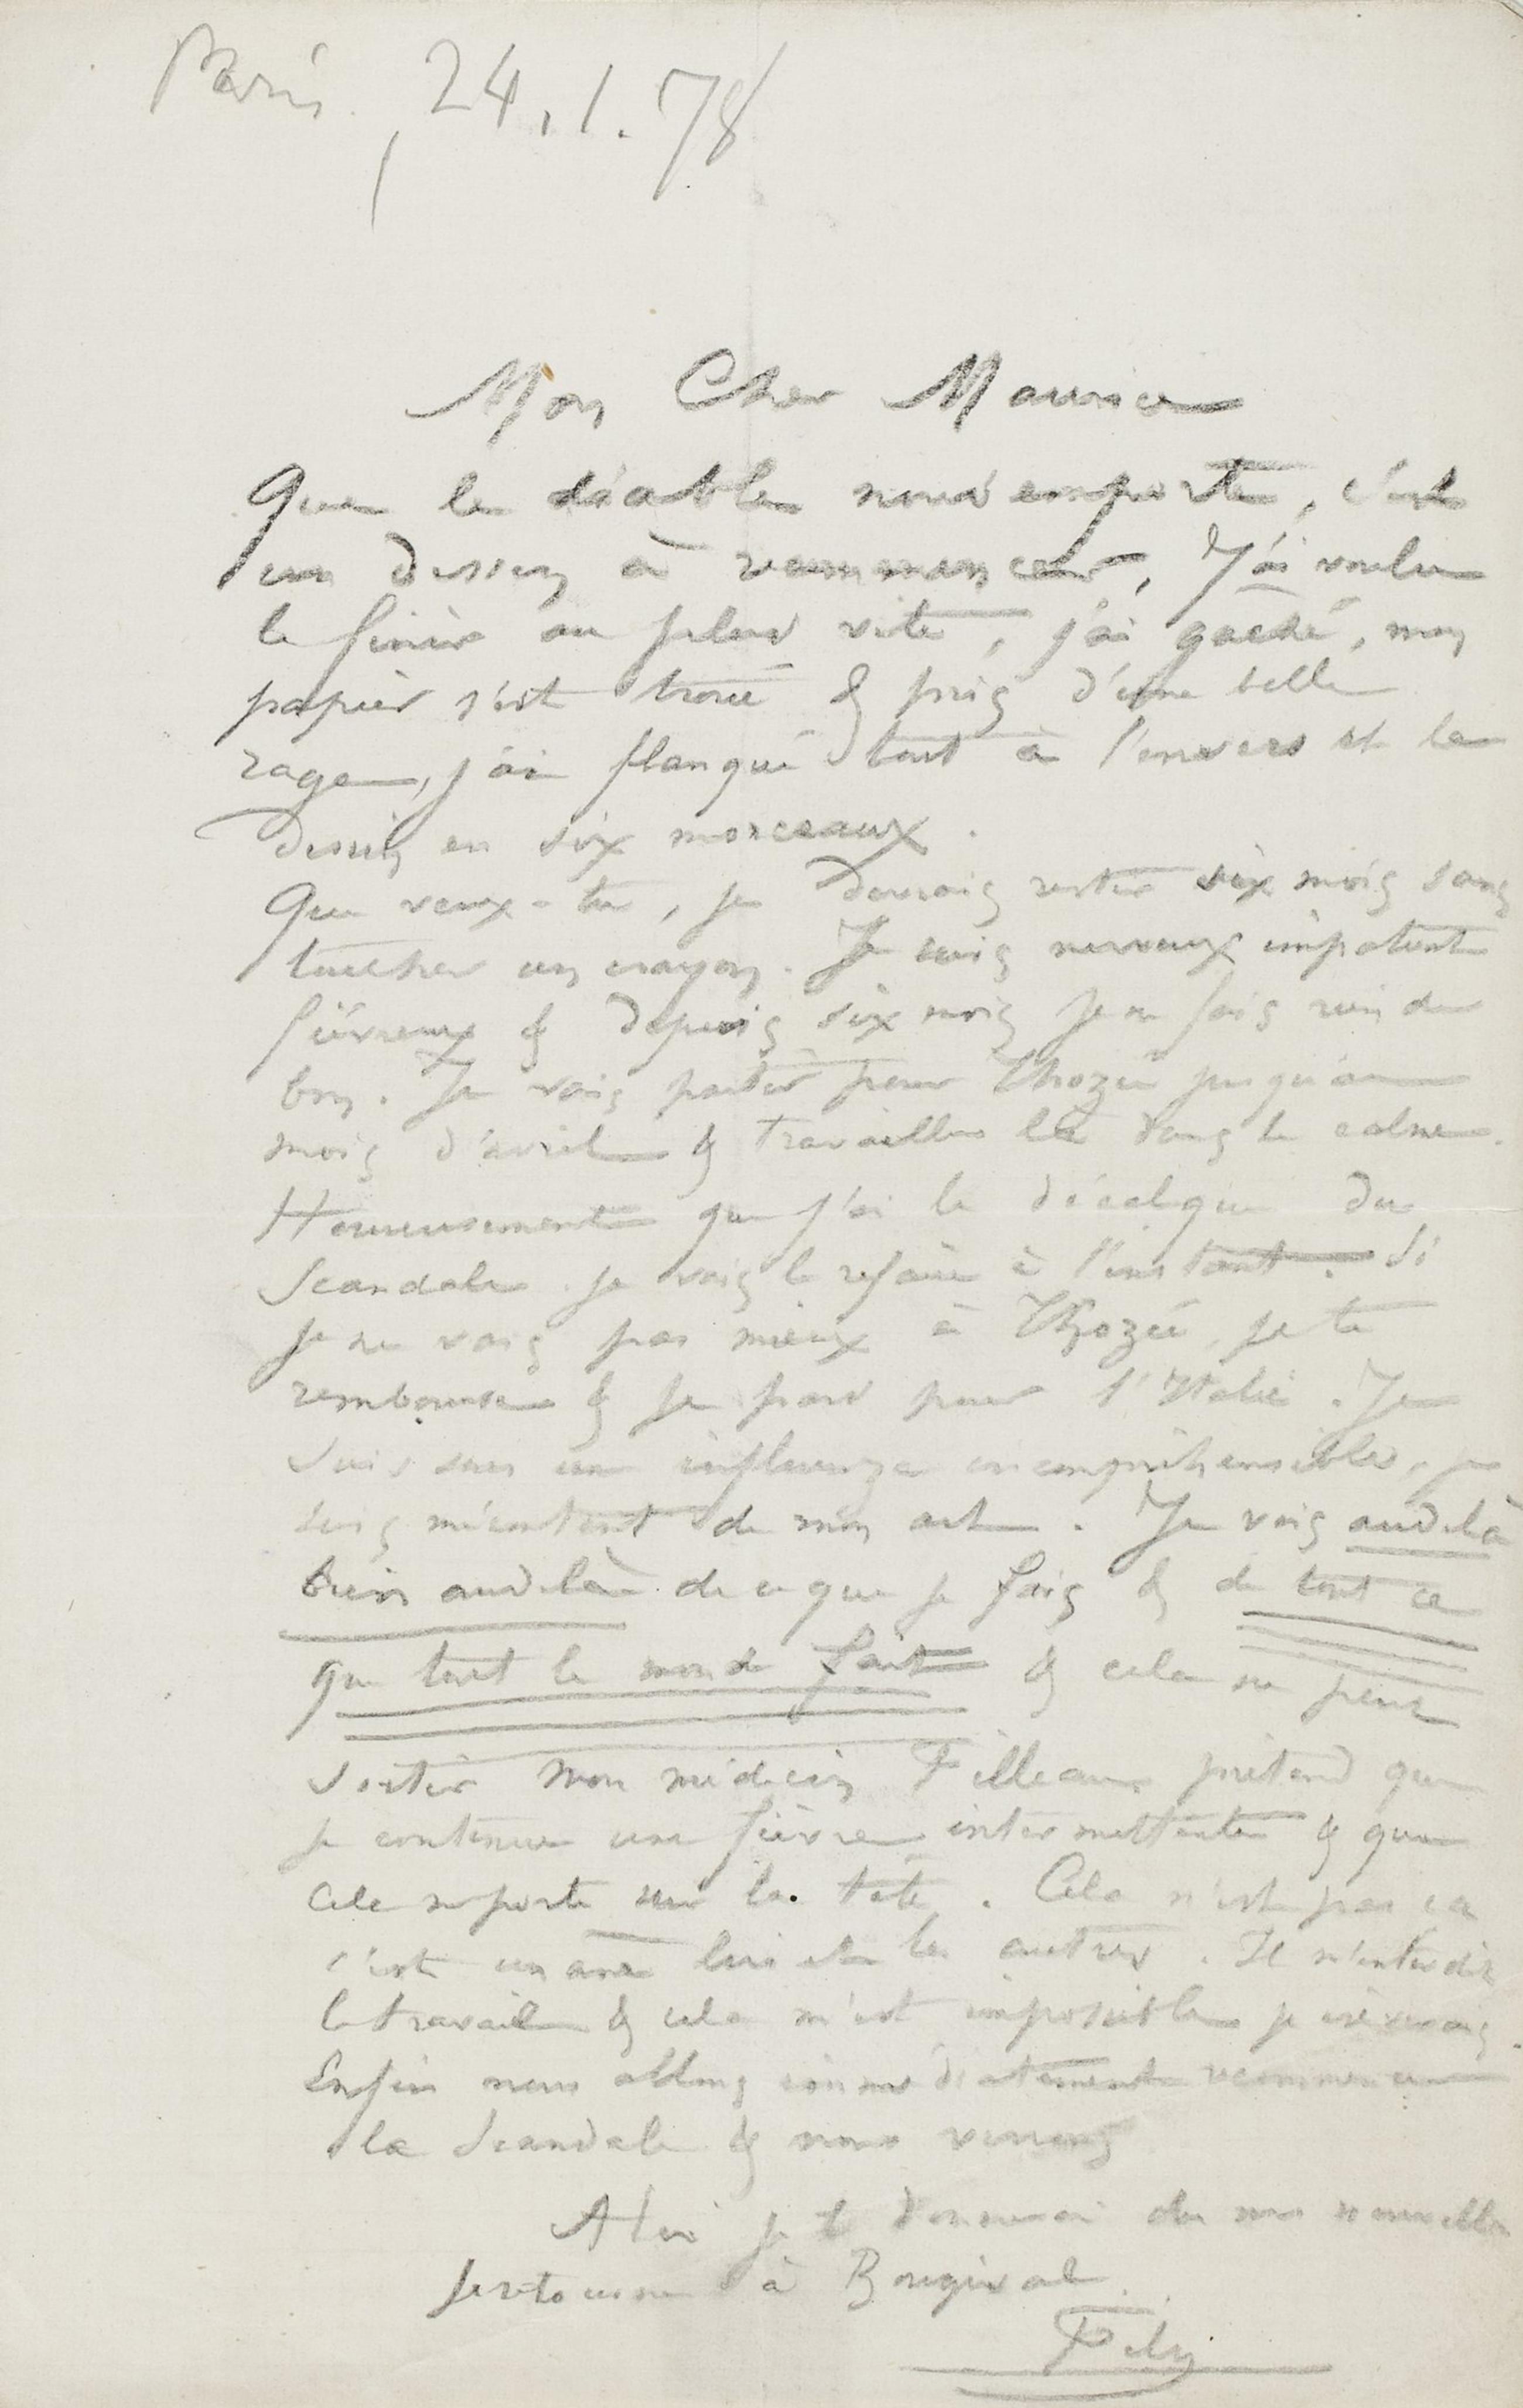 Paris, 24.1.78
Mon Cher Maurice
Que le diable nous emporte, c'est
un dessin à recommencer, J'ai voulu
le finir au plus vite, j'ai gaché, mon
papier s'est troué & pris d'une belle
rage, j'ai flanqué tout à l'envers et le
dessin en six morceaux.
Que veux-tu, je devrais rester six mois sans
toucher un crayon. Je suis nerveux impotent
fiévreux & depuis six mois je ne fais rien de
bon. Je vais partir pour Thozée jusqu'au
mois d'avril & travailler là dans le calme.
Heureusement que j'ai le décalque du
Scandale je vais le refaire à l'instant. Si
je ne vais pas mieux à Thozée, je te
rembourse & je pars pour l'Italie. Je
suis sous une influenza incompréhensible, je
suis mécontent de mon art. Je vois audelà
bien audelà de ce que je fais & de tout ce
que tout le monde fait & cela ne peut
sortir Mon médecin Filleau prétend que
je continue une fièvre intermittente & que
cela se porte sur la tête. Cela n'est pas ça
c'est un ane lui et les autres. Il m'interdit
le travail & cela m'est impossible je
Enfin nous allons immédiatement recommencer
la Scandale & nous verrons
A toi je te donnerai de mes nouvelles
je retourne à Bougival.
Fély